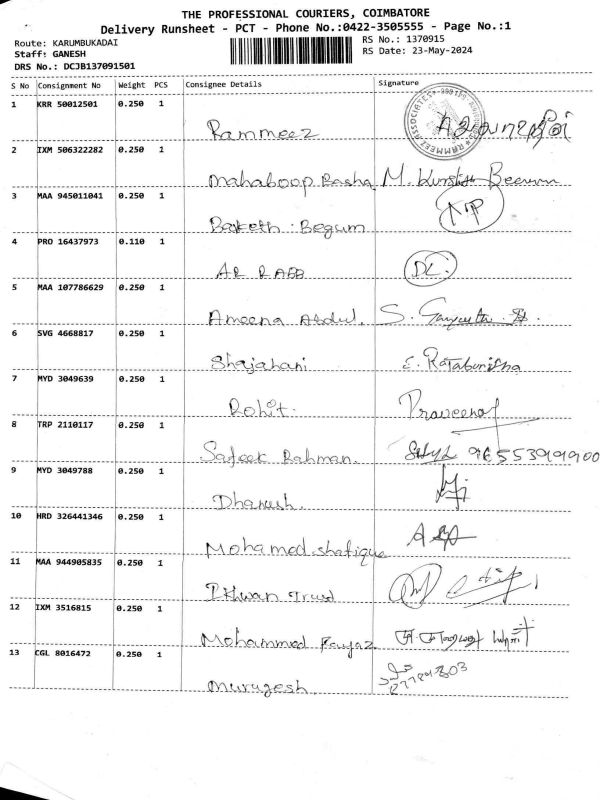 THE PROFESSIONAL COURIERS, COIMBATORE
Delivery Runsheet - PCT - Phone No.:0422-3505555 - Page No.:1
Route: KARUMBUKADAI
RS No.: 1370915
Staff: GANESH
RS Date: 23-May-2024
DRS No.: DCJB137091501
S No Consignment No Weight PCS Consignee Details Signature
1 KRR 50012501 0.250 1
Rammeez
2 IXM 506322282 0.250 1
Mahaboop Basha M.
3 MAA 945011041 0.250 1
Baketh. Begum
4 PRO 16437973 0.110 1
AR RABB DL
5 MAA 107786629 0.250 1
Ameena Abdul. S.
6 SVG 4668817 0.250 1
Shajahani
7 MYD 3049639 0.250 1
Rohit. Praveena
8 TRP 2110117 0.250 1
Safeek Rahman. 9655399900
9 MYD 3049788 0.250 1
Dhanush.
10 HRD 326441346 0.250 1
Mohamed shafique
11 MAA 944905835 0.250 1
Ikhwan Trust
12 IXM 3516815 0.250 1
Mohammed Fayaz
13 CGL 8016472 0.250 1
Murugesh